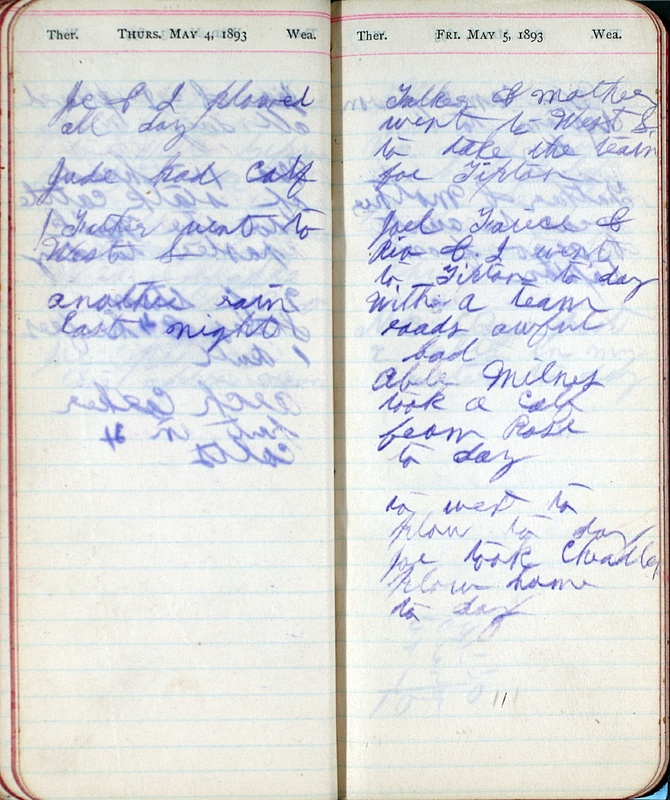 Ther. THURS. MAY 4, 1893 Wea.
Joe & I plowed
all day
Jude had calf
Father went to
West
another rain
last night
Ther. FRI. MAY 5, 1893 Wea.
Father & mother
went to West
to take the team
for Tipton
Joel &
& I went
to Tipton to day
with a team
roads awful
bad
Able Milnes
took a calf
from Rose
to day
to wet to
plow to day
Joe took
plow home
to day